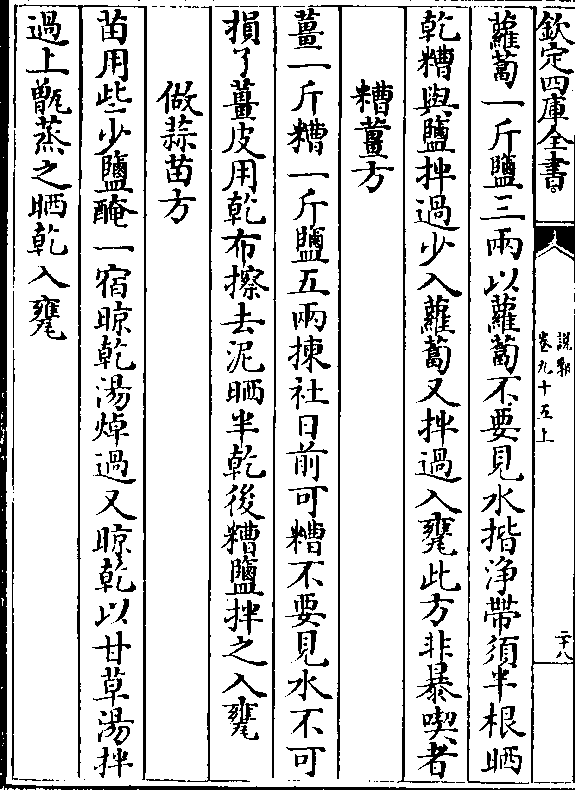 欽定四庫全書
說郛
卷九十五上
二十八
蘿蔔一斤鹽三兩以蘿蔔不要見水揩淨帶須半根晒
乾糟與鹽拌過少入蘿蔔又拌過入甕此方非暴喫者
糟薑方
薑一斤糟一斤鹽五兩揀社日前可糟不要見水不可
損了薑皮用乾布擦去泥晒半乾後糟鹽拌之入甕
做蒜苗方
苗用些少鹽醃一宿晾乾湯焯過又晾乾以甘草湯拌
過上甑蒸之晒乾入甕